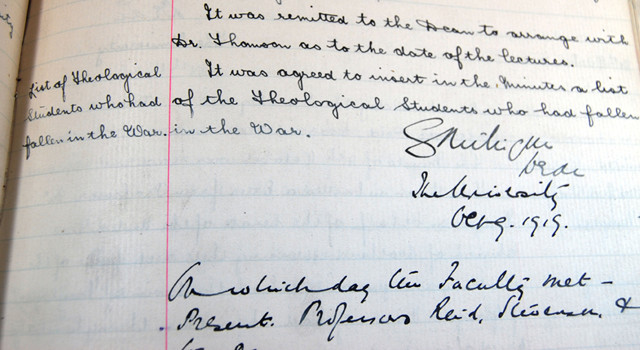 It was remitted to the Dean to arrange with
Dr. Thomson as to the date of the lectures.
List of Theological
Students who had
fallen in the War.
It was agreed to insert in the Minutes a list
of the Theological Students who had fallen
in the War.
The University
Oct 9. 1919.
On which day the Faculty met –
Present. Professors Reid, Stevenson, &